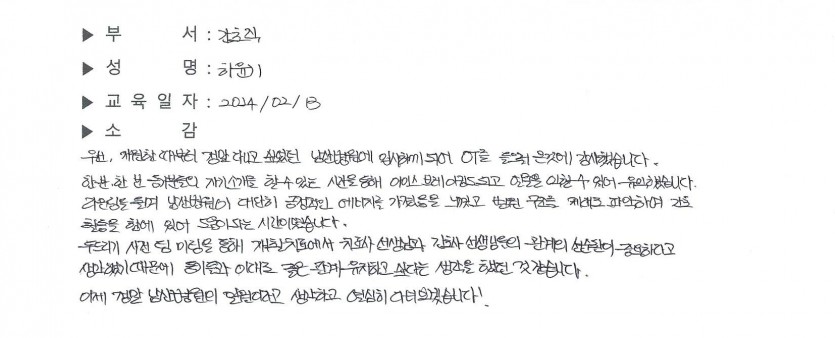 ▶ 부 서 : 간호직
▶ 성 명 : 하윤기
▶ 교 육 일 자 : 2024/02/13
▶ 소 감
우선, 개원할 때부터 정말 다니고 싶었던 남산병원에 입사하게 되어 OT를 들으러 온것에 감사했습니다.
한분 한 분 동기분들의 자기소개를 할 수 있는 시간을 통해 아이스브레이킹도 되고 얼굴을 익힐 수 있어 유익했습니다.
라운딩을 돌며 남산병원이 대단히 긍정적인 에너지를 가졌음을 느꼈고 병원 구조를 제대로 파악하여 간호
활동을 함에 있어 도움이 되는 시간이었습니다.
우리가 사전 팀 미팅을 통해 재활치료에서 치료사 선생님과 간호사 선생님들의 관계의 중요하다고
생각했기 때문에 동기들과 이대로 좋은 관계 유지하고 싶다는 생각을 했던 것 같습니다.
이제 정말 남산병원의 일원이라고 생각하고 열심히 다니겠습니다!